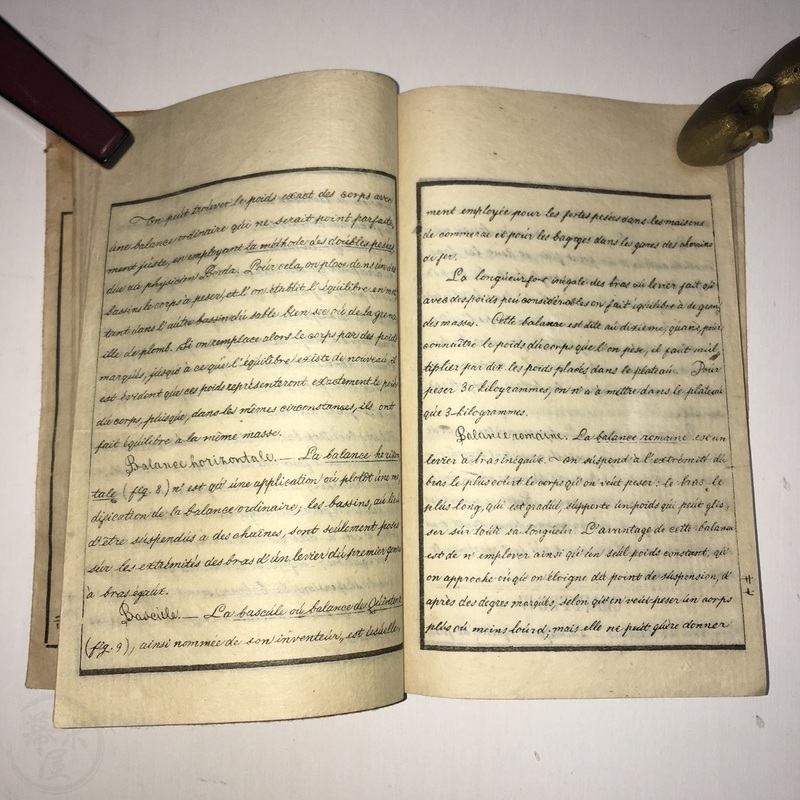 On peut trouver le poids exact des corps avec
une balance ordinaire qui ne serait point parfaite
ment juste, en employant la méthode des doubles pesées
due au physicien Borda. Pour cela, on place dans un des
bassins le corps à peser, et l'on établit l'équilibre en met
tant dans l'autre bassin du sable bien sec ou de la grena
ille de plomb. Si on remplace alors le corps par des poids
marqués, jusqu'à ce que l'équilibre existe de nouveau, il
est évident que ces poids représenteront exactement le poids
du corps, puisque, dans les mêmes circonstances, ils ont
fait équilibre à la même masse.
Balance horizontale. — La balance horizon
tale (fig. 8) n'est qu'une application ou plutôt une mo
dification de la balance ordinaire; les bassins, au lieu
d'être suspendus a des chaînes, sont seulement posés
sur les extrémités des bras d'un levier du premier genre
à bras égaux.
Bascule. — La bascule ou balance de Quintenz
(fig. 9), ainsi nommée de son inventeur, est usuelle
ment employée pour les fortes pesées dans les maisons
de commerce et pour les bagages dans les gares des chemins
de fer.
La longueur fort inégale des bras au levier fait qu'
avec des poids peu considérables on fait équilibre à de gran
des masses. Cette balance est dite au dixième, quand, pour
connaître le poids du corps que l'on pèse, il faut mul
tiplier par dix les poids placés dans le plateau. Pour
peser 30 kilogrammes, on n'a à mettre dans le plateau
que 3 kilogrammes.
Balance romaine. La balance romaine est un
levier à bras inégaux. On suspend à l'extrémité du
bras le plus court le corps qu'on veut peser: le bras le
plus long, qui est gradué, supporte un poids qui peut glis
ser sur toute sa longueur. L'avantage de cette balance
est de n'employer ainsi qu'un seul poids constant, qu'
on approche ou qu'on éloigne du point de suspension, d'
après des degres marqués, selon qu'on veut peser un corps
plus ou moins lourd; mais elle ne peut guère donner